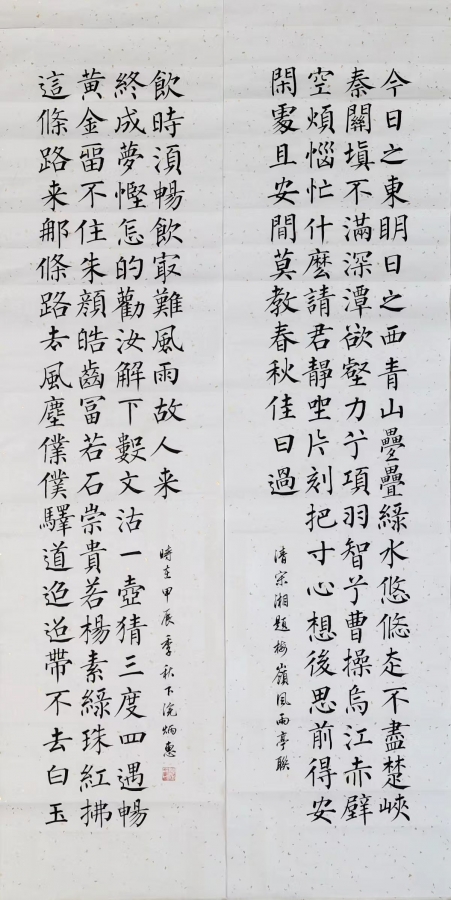 今日之東明日之西青山疊疊綠水悠悠走不盡楚峽
秦關塡不滿深潭欲壑力兮項羽智兮曹操烏江赤壁
空煩惱忙什麼請君靜坐片刻把寸心想後思前得安
閑處且安閒莫教春秋佳日過
清宋湘題梅嶺風雨亭聯
這條路来那條路去風塵僕僕驛道迢迢帶不去白玉
黃金畱不住朱顏皓齒冨若石崇貴若楊素綠珠紅拂
終成夢慳怎的勸汝解下數文沽一壺猜三度四遇暢
飲時湏暢飲㝡難風雨故人来
時在甲辰季秋下浣炳惠